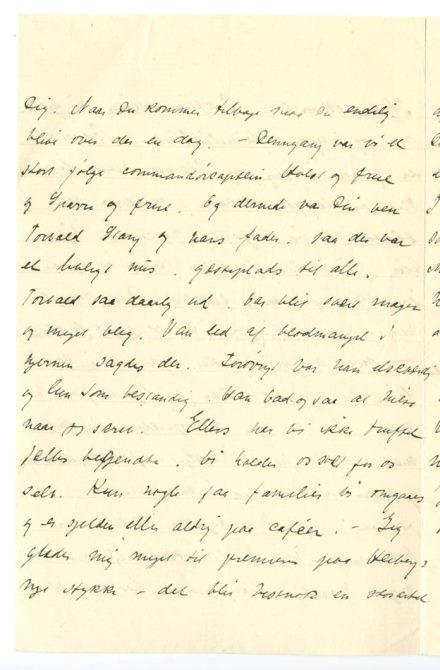 Dig. Naar Du kommer tilbage maa Du endelig
blive over der en dag. – Denngang var vi et
stort følge commandørcaptein Holst og frue
og Sparre og frue. Og dernede var Din ven
Torvald Stang og hans fader. saa der var
et livligt hus. gjesteplads til alle.
Torvald saa daarlig ud. har blit svært mager
og meget bleg. Han led af blodmangel i
hjernen sagdes der. Forøvrigt var han elskværdig
og lun som bestandig. Han bad ogsaa at hilse
naar jeg skrev. Ellers har vi ikke truffet
fælles bekjendte. Vi holder os vel for os
selv. Kun nogle faa familier vi omgaaes
og er sjelden eller aldrig paa caféer. – Jeg
glæder mig meget til premieren paa Heibergs
nye stykke – det blir vistnok en